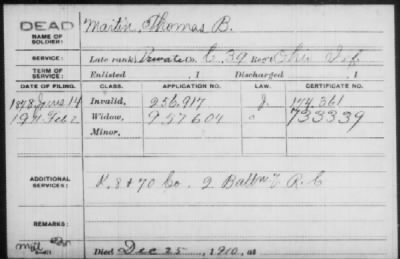 DEAD
NAME OF SOLDIER: Martin, Thomas B.
SERVICE: Late rank, Private Co. C, 39 Reg't Ohio Inf
TERM OF SERVICE: Enlisted , 1 Discharged , 1
DATE OF FILING. CLASS. APPLICATION NO. LAW. CERTIFICATE NO.
1878 June 14 Invalid, 256.917 J. 174.361
1911 Feb 2 Widow, 957604 733339
Minor,
ADDITIONAL SERVICES: K. 8 & 70 Co. 2 Batt'n V. R. C
REMARKS:
Died Dec 25, 1910, at